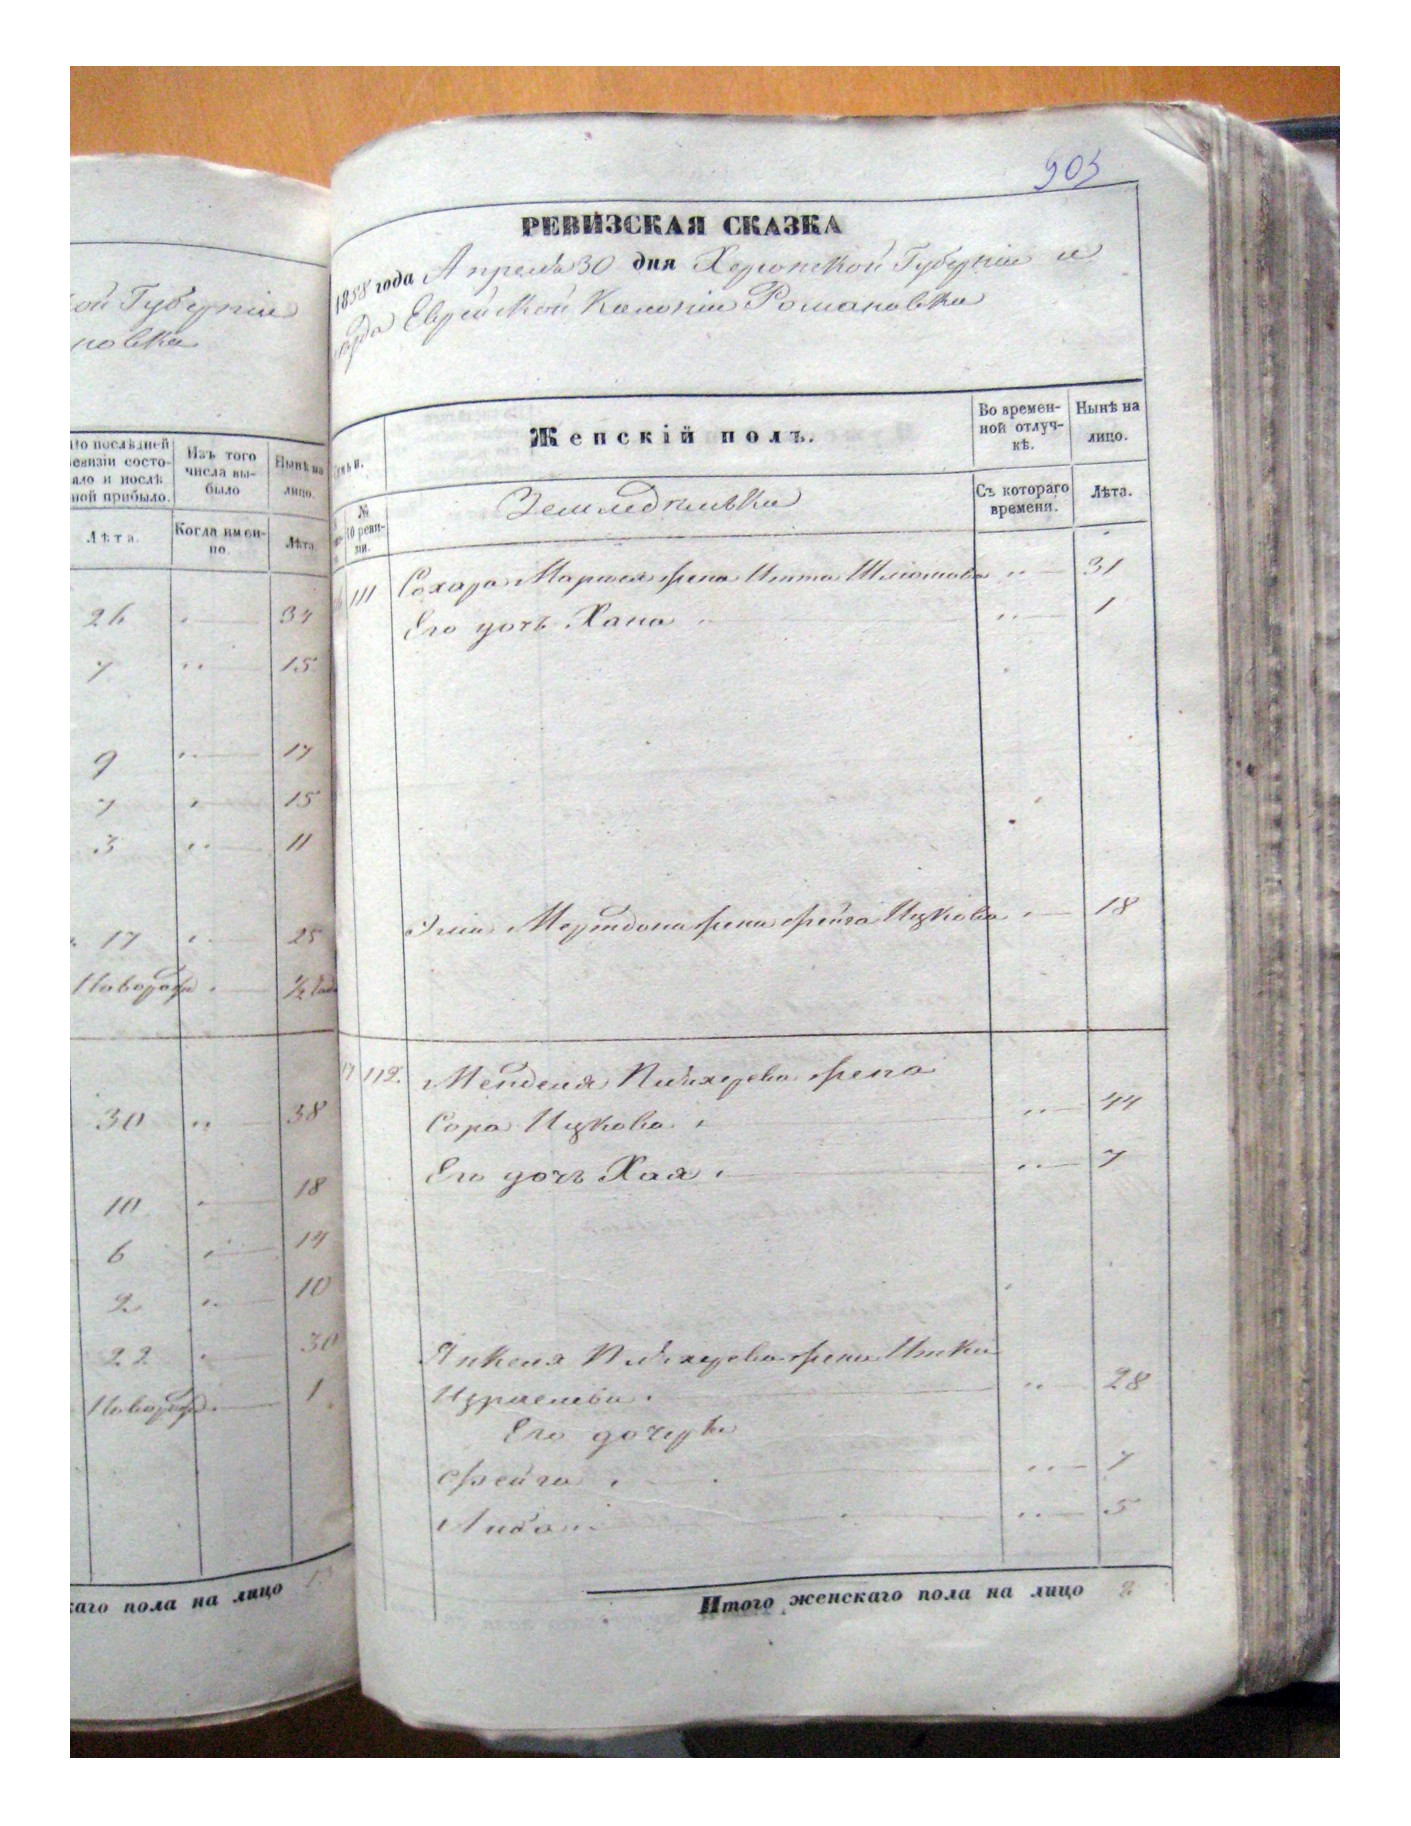 ой Губерніи
новка
По послѣдней ревизіи состояло и послѣ ной прибыло.
Изъ того числа выбыло
Нынѣ на лицо.
Лѣта.
Когда именно
Лѣта
26 34
7 15
9 17
7 15
3 11
17 25
Новорож ½ года
30 38
10 18
6 14
2 10
22 30
Новорож 1
каго пола на лицо
903
РЕВИЗСКАЯ СКАЗКА
1858 года Апреля 30 дня Херсонской Губерніи и
уѣзда Еврейской Колоніи Романовки
Женскій полъ.
Во временной отлучкѣ.
Нынѣ на лицо.
№ 10 ревизіи.
Земледѣльцы
Съ котораго времени.
Лѣта.
111 Сохара жена Шліомова 31
Его дочь Хана 1
жена Фейга Ицкова 18
112. Менделя жена
Сора Ицкова 44
Его дочь Хая 7
Янкеля жена Итка
Израелева 28
Его дочери
Фейга 7
Либа 5
Итого женскаго пола на лицо